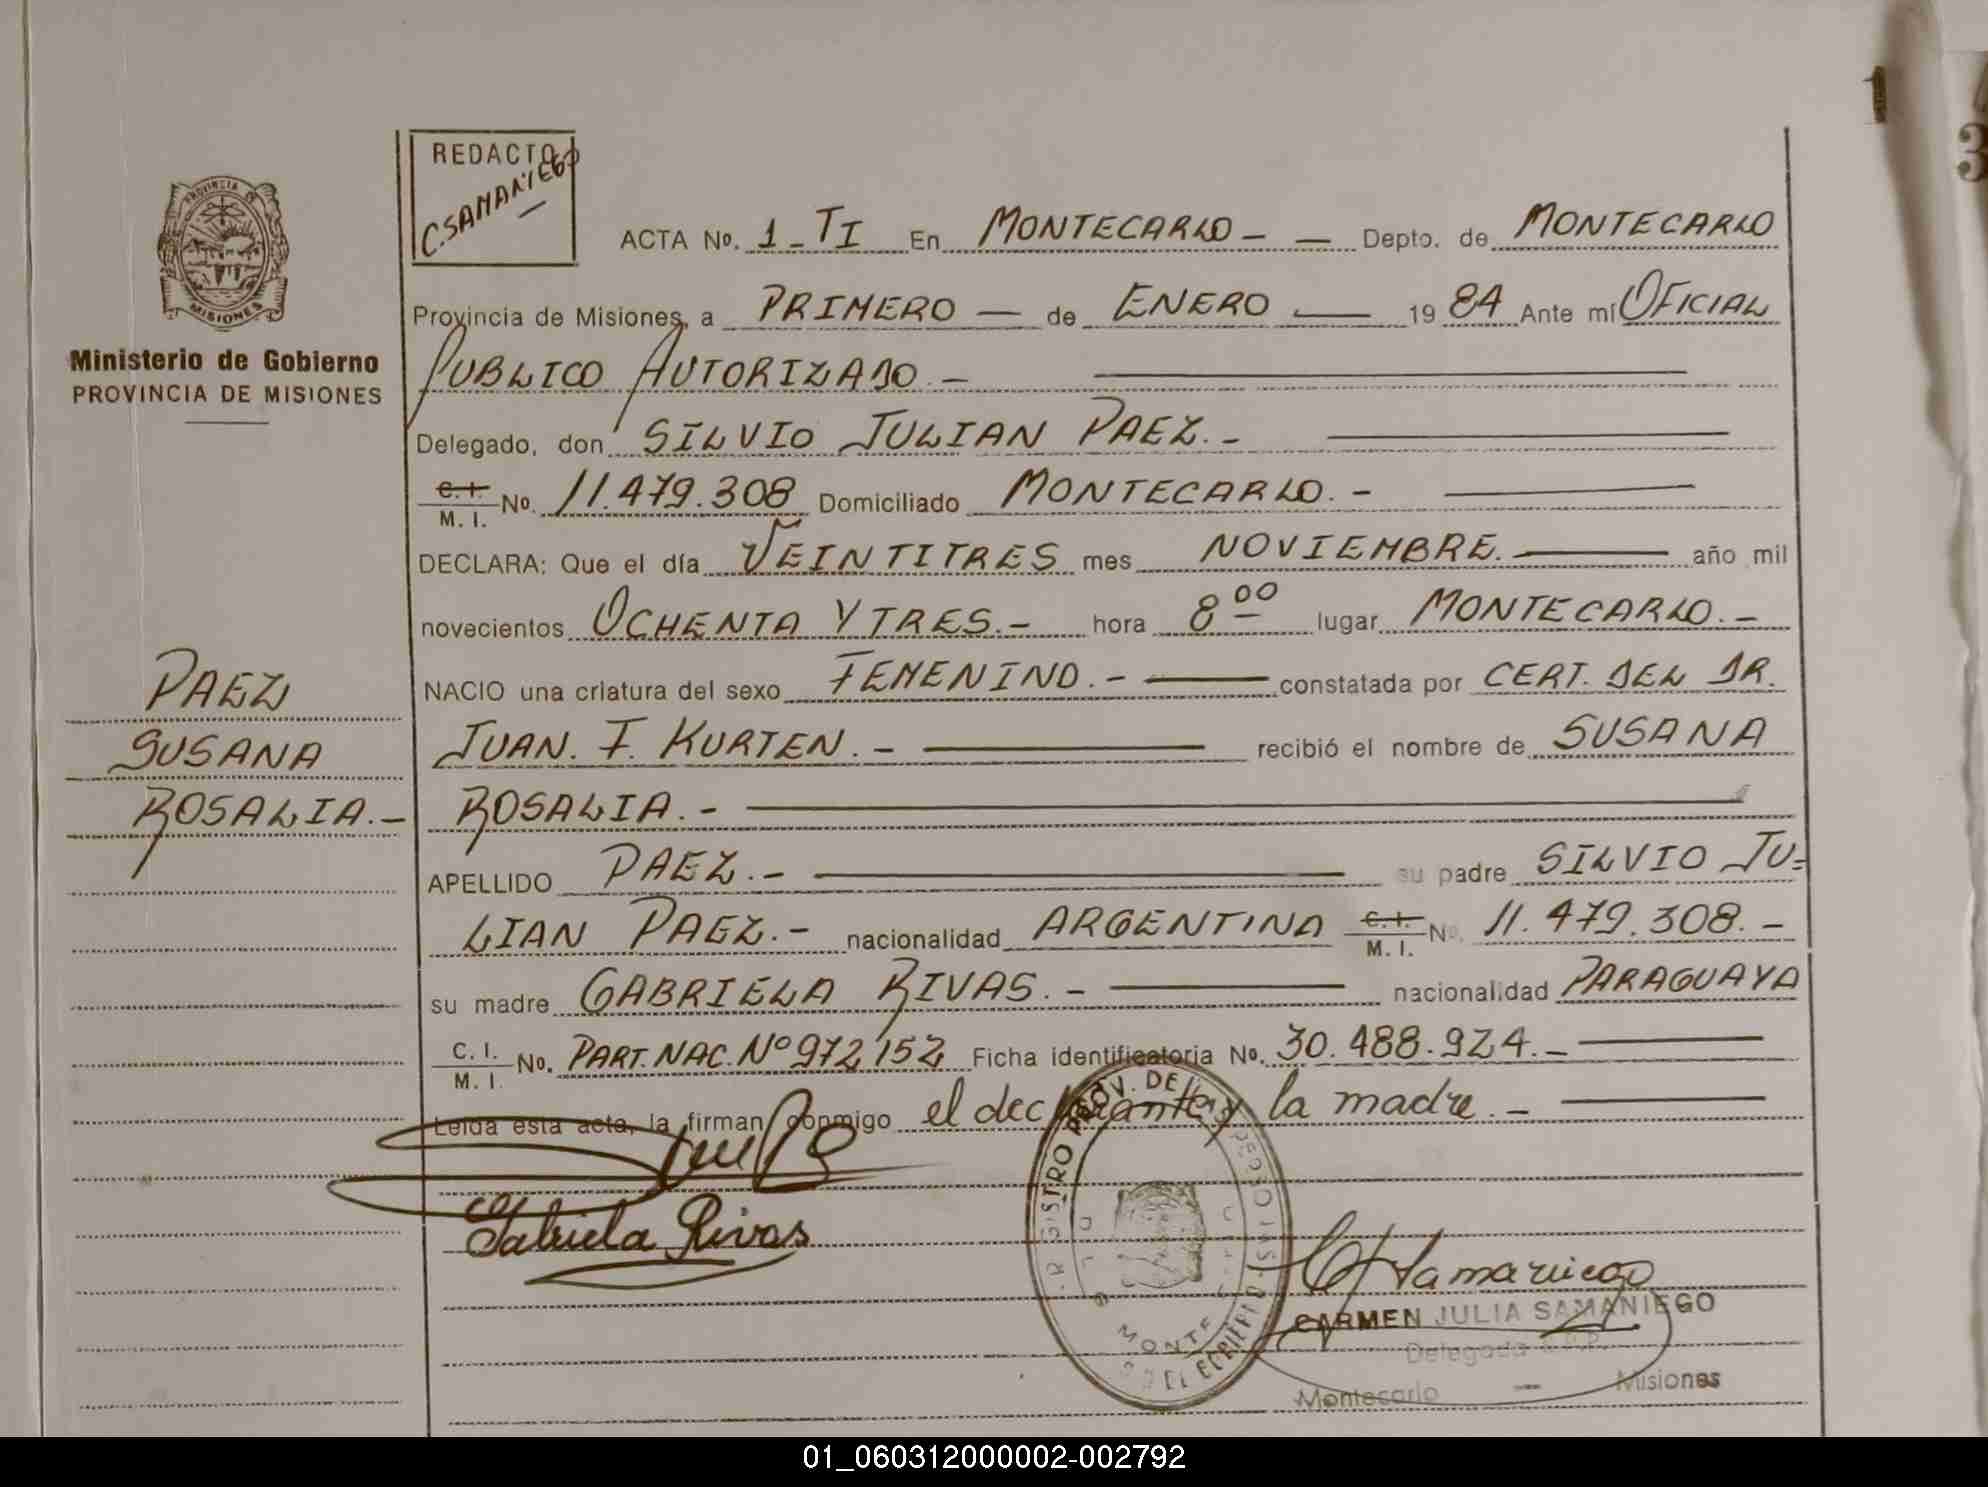 REDACTO
C. SAMANIEGO
PROVINCIA
MISIONES
Ministerio de Gobierno
PROVINCIA DE MISIONES
ACTA No. 1-TI En MONTECARLO - — Depto. de MONTECARLO
Provincia de Misiones, a PRIMERO — de ENERO — 1984 Ante mí OFICIAL
PUBLICO AUTORIZADO.-
Delegado, don SILVIO JULIAN PAEZ.-
C.I. M.I. No. 11.479.308 Domiciliado MONTECARLO.-
DECLARA: Que el día VEINTITRES mes NOVIEMBRE. — año mil
novecientos OCHENTA Y TRES.- hora 8 00 lugar MONTECARLO.-
NACIO una criatura del sexo FEMENINO.- — constatada por CERT. DEL DR.
JUAN. F. KURTEN.- — recibió el nombre de SUSANA
ROSALIA.-
APELLIDO PAEZ.- — su padre SILVIO JU=
LIAN PAEZ.- nacionalidad ARGENTINA C.I. M.I. No. 11.479.308.-
su madre GABRIELA RIVAS.- — nacionalidad PARAGUAYA
C.I. M.I. No. PART. NAC. Nº 972152 Ficha identificatoria No. 30.488.924.-
Leída esta acta, la firman conmigo el declarante y la madre.-
PAEZ
SUSANA
ROSALIA.-
Gabriela Rivas
REGISTRO PROV. DE LAS PERSONAS
CSamaniego
CARMEN JULIA SAMANIEGO
Delegada
Montecarlo - Misiones
01_060312000002-002792